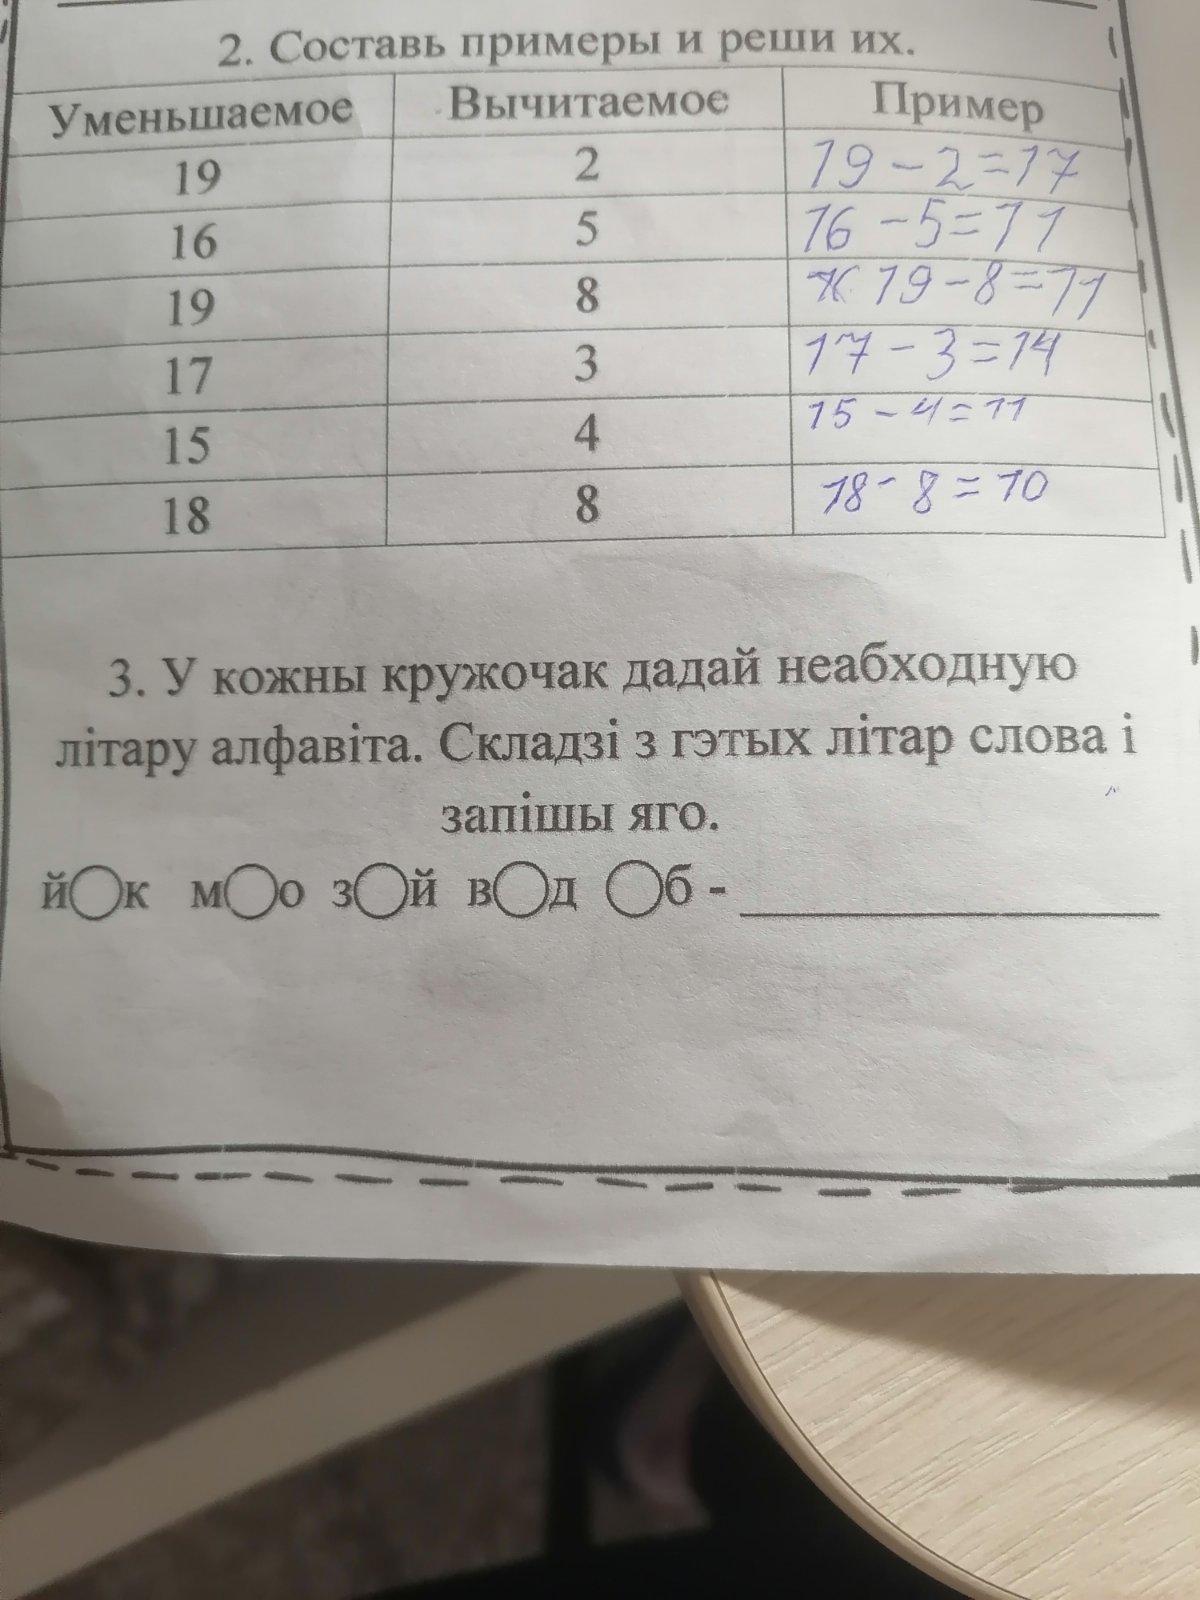 2. Составь примеры и реши их.
Уменьшаемое Вычитаемое Пример
19 2 19-2=17
16 5 16-5=11
19 8 19-8=11
17 3 17-3=14
15 4 15-4=11
18 8 18-8=10
3. У кожны кружочак дадай неабходную
літару алфавіта. Складзі з гэтых літар слова і
запішы яго.
й○к м○о з○й в○д ○б - ____________